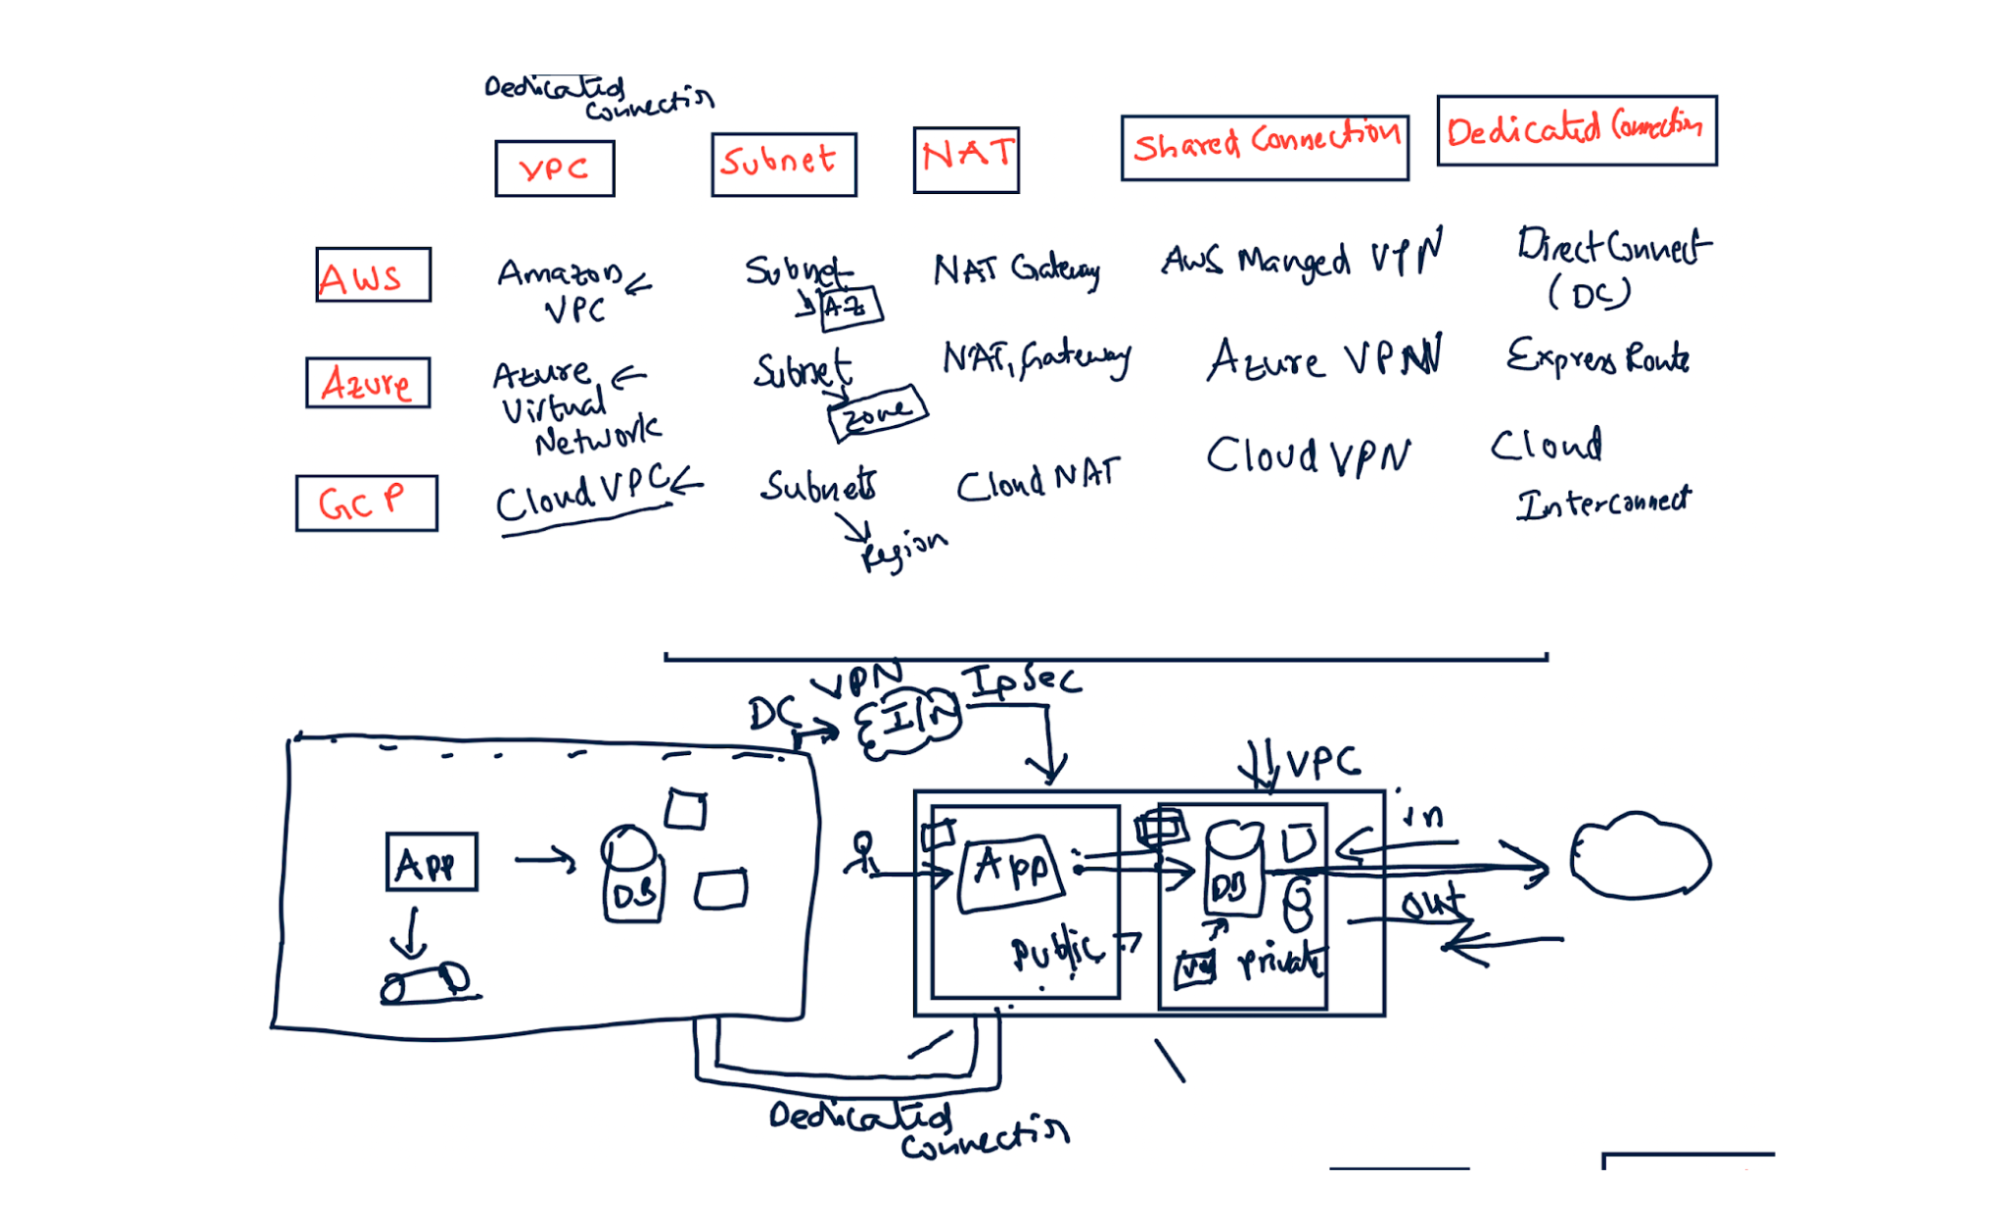 Dedicated
Connection
VPC
Subnet
NAT
Shared Connection
Dedicated Connection
AWS
Amazon
VPC
Subnet
AZ
NAT Gateway
AWS Manged VPN
Direct Connect
(DC)
Azure
Azure
Virtual
Network
Subnet
Zone
NAT, Gateway
Azure VPN
Express Route
GCP
Cloud VPC
Subnets
Region
Cloud NAT
Cloud VPN
Cloud
Interconnect
VPN
IpSec
DC
VPC
in
App
DB
App
DB
out
public
private
Dedicated
Connection